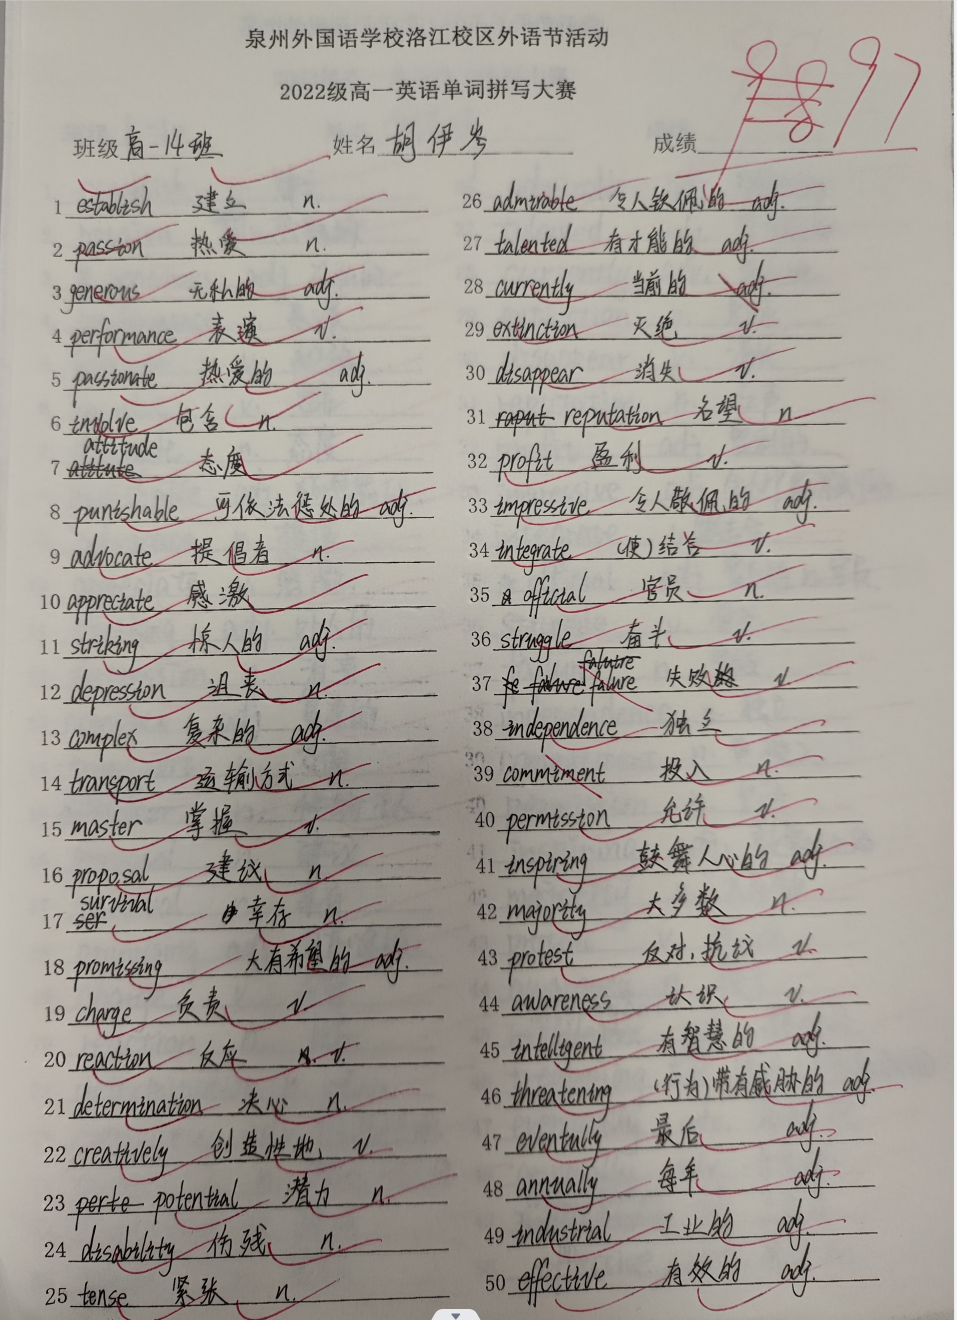 泉州外国语学校洛江校区外语节活动
2022级高一英语单词拼写大赛
班级 高一14班 姓名 胡伊岑 成绩 97
1 establish 建立 n.
2 passion 热爱 n.
3 generous 无私的 adj.
4 performance 表演 v.
5 passionate 热爱的 adj.
6 involve 包含 n.
attitude
7 attitute 态度
8 punishable 可依法惩处的 adj.
9 advocate 提倡者 n.
10 appreciate 感激
11 striking 惊人的 adj.
12 depression 沮丧 n.
13 complex 复杂的 adj.
14 transport 运输方式 n.
15 master 掌握 v.
16 proposal 建议 n.
survival
17 ser 幸存 n.
18 promissing 大有希望的 adj.
19 charge 负责 v.
20 reaction 反应 n. v.
21 determination 决心 n.
22 creatively 创造性地 v.
23 perte potential 潜力 n.
24 disability 伤残 n.
25 tense 紧张 n.
26 admirable 令人钦佩的 adj.
27 talented 有才能的 adj.
28 currently 当前的 adj.
29 extinction 灭绝 v.
30 disappear 消失 v.
31 raput reputation 名望 n
32 profit 盈利 v.
33 impressive 令人敬佩的 adj.
34 integrate (使)结合 v.
35 official 官员 n.
36 struggle 奋斗 v.
falutre
37 falure falure 失败 v.
38 independence 独立
39 commiment 投入 n.
40 permission 允许 v.
41 inspiring 鼓舞人心的 adj.
42 majority 大多数 n.
43 protest 反对,抗议 v.
44 awareness 认识 v.
45 intelligent 有智慧的 adj.
46 threatening (行为)带有威胁的 adj.
47 eventully 最后 adj.
48 annually 每年 adj.
49 industrial 工业的 adj.
50 effective 有效的 adj.